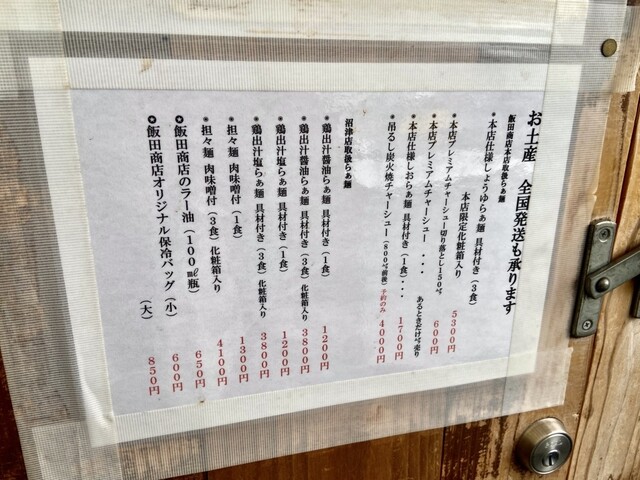 お土産 全国発送も承ります
飯田商店本店取扱らぁ麺
*本店仕様しょうゆらぁ麺 具材付き(3食)
本店限定化粧箱入り 5300円
*本店プレミアムチャーシュー切り落とし150g 600円
*本店プレミアムチャーシュー・・・あるときだけ売り
*本店仕様しおらぁ麺 具材付き(1食)・・・1700円
*吊るし炭火焼チャーシュー(800g前後)予約のみ 4000円
沼津店取扱らぁ麺
*鶏出汁醤油らぁ麺 具材付き(1食) 1200円
*鶏出汁醤油らぁ麺 具材付き(3食)化粧箱入り 3800円
*鶏出汁塩らぁ麺 具材付き(1食) 1200円
*鶏出汁塩らぁ麺 具材付き(3食)化粧箱入り 3800円
*担々麺 肉味噌付(1食) 1300円
*担々麺 肉味噌付(3食)化粧箱入り 4100円
◎飯田商店のラー油(100㎖瓶) 650円
◎飯田商店オリジナル保冷バッグ(小) 600円
(大) 850円